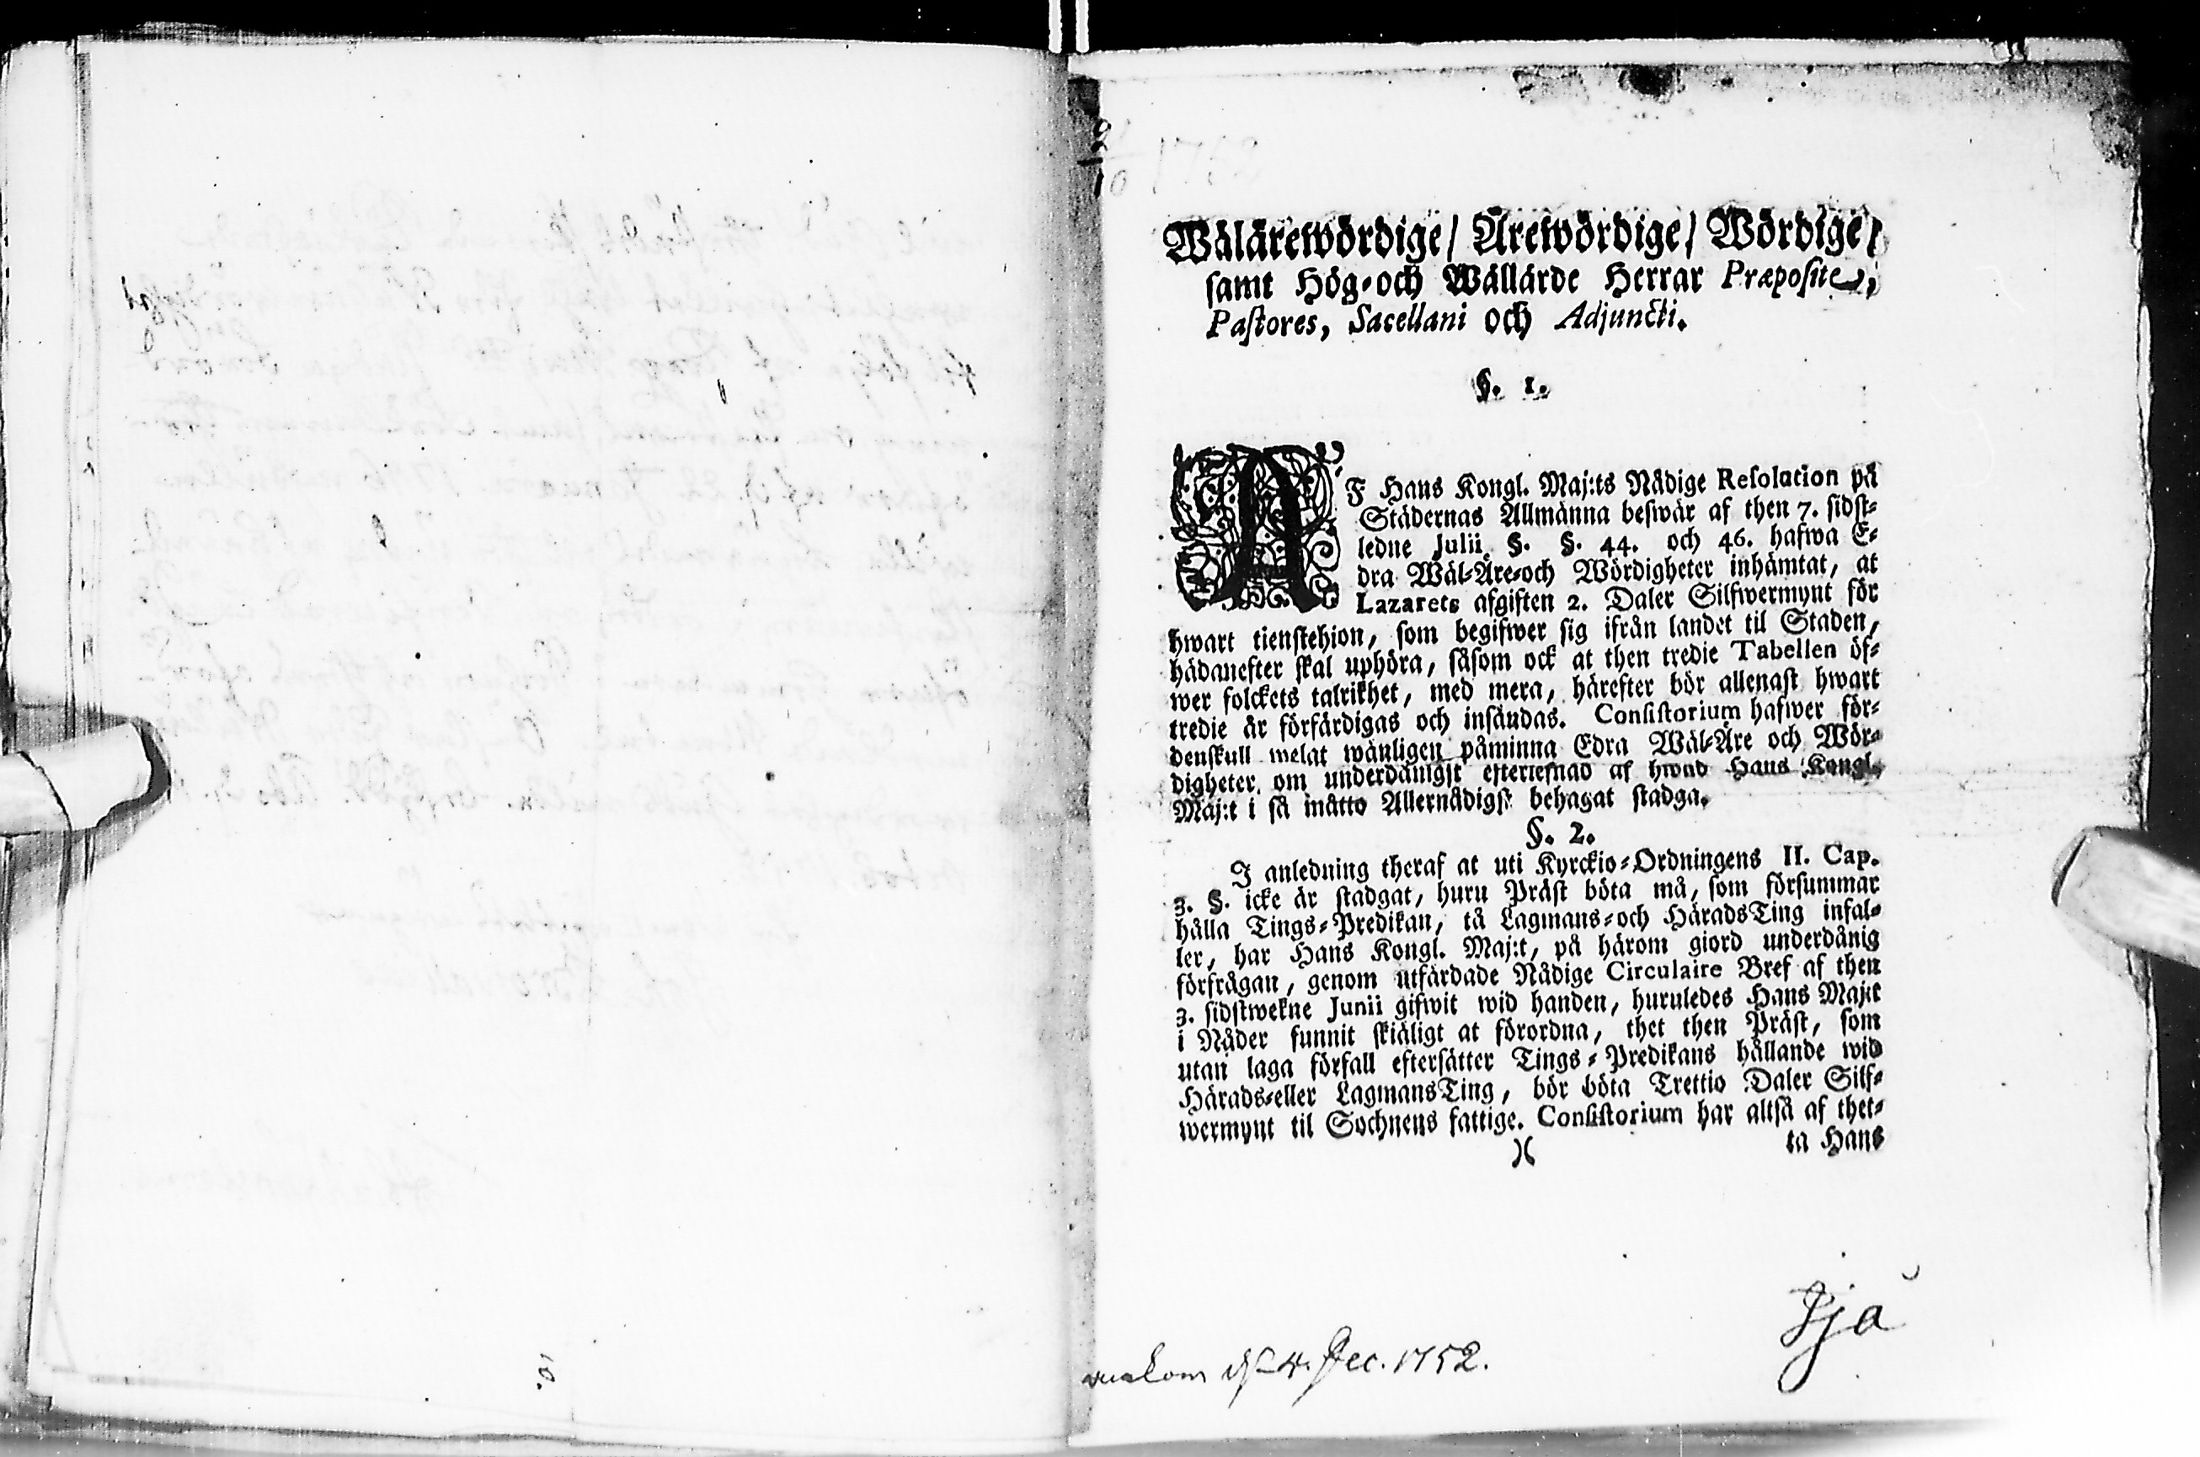 1752
Wälärewördige/ Ärewördige/ Wördige/
samt Hög-och Wällärde Herrar Præposite,
Pastores, Sacellani och Adjuncti.
§. 1.
AF Hans Kongl. Maj:ts Nådige Resolution på
Städernas Allmänna beswär af then 7. sidst-
ledne Julii §. §. 44. och 46. hafwa E-
dra Wäl-Äre-och Wördigheter inhämtat, at
Lazarets afgiften 2. Daler Silfwermynt för
hwart tienstehion, som begifwer sig ifrån landet til Staden,
hädanefter skal uphöra, såsom ock at then tredie Tabellen öf-
wer folckets talrikhet, med mera, härefter bör allenast hwart
tredie år förfärdigas och insändas. Consistorium hafwer för-
denskull welat wänligen påminna Edra Wäl-Äre och Wör-
digheter om underdånigst efterlefnad af hwad Hans Kongl.
Maj:t i så måtto Allernådigst behagat stadga.
§. 2.
I anledning theraf at uti Kyrckio-Ordningens II. Cap.
3. §. icke är stadgat, huru Präst böta må, som försummar
hålla Tings-Predikan, tå Lagmans-och HäradsTing infal-
ler, har Hans Kongl. Maj:t, på härom giord underdånig
förfrågan, genom utfärdade Nådige Circulaire Bref af then
3. sidstwekne Junii gifwit wid handen, huruledes Hans Maj:t
i Nåder funnit skiäligt at förordna, thet then Präst, som
utan laga förfall eftersätter Tings-Predikans hållande wid
Härads-eller LagmansTing, bör böta Trettio Daler Silf-
wermynt til Sochnens fattige. Consistorium har altså af thet-
)( ta Hans
ankom d. 4. Dec. 1752.